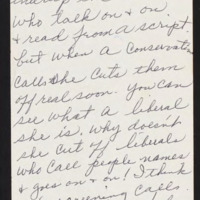 who talk on & on
& read from a script.
but when a Conservative
calls she cuts them
off real soon. You can
see what a liberal
she is. Why doesn't
she cut off liberals
who call people names
& goes on & on! I think
calls.